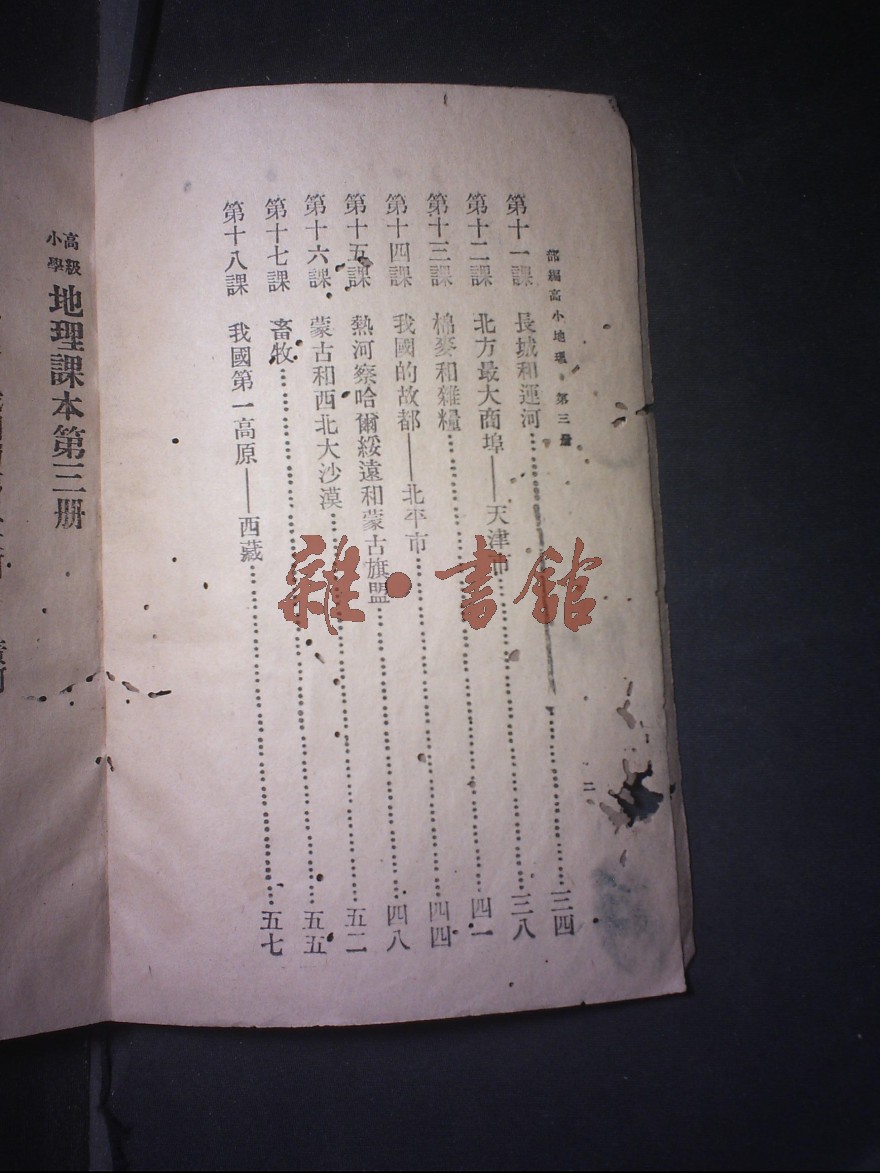 部編高小地理 第三册
二
第十一課 長城和運河……三四
第十二課 北方最大商埠——天津市……三八
第十三課 棉麥和雜糧……四一
第十四課 我國的故都——北平市……四四
第十五課 熱河察哈爾綏遠和蒙古旗盟……四八
第十六課 蒙古和西北大沙漠……五二
第十七課 畜牧……五五
第十八課 我國第一高原——西藏……五七
高級小學 地理課本第三册
雜·書館